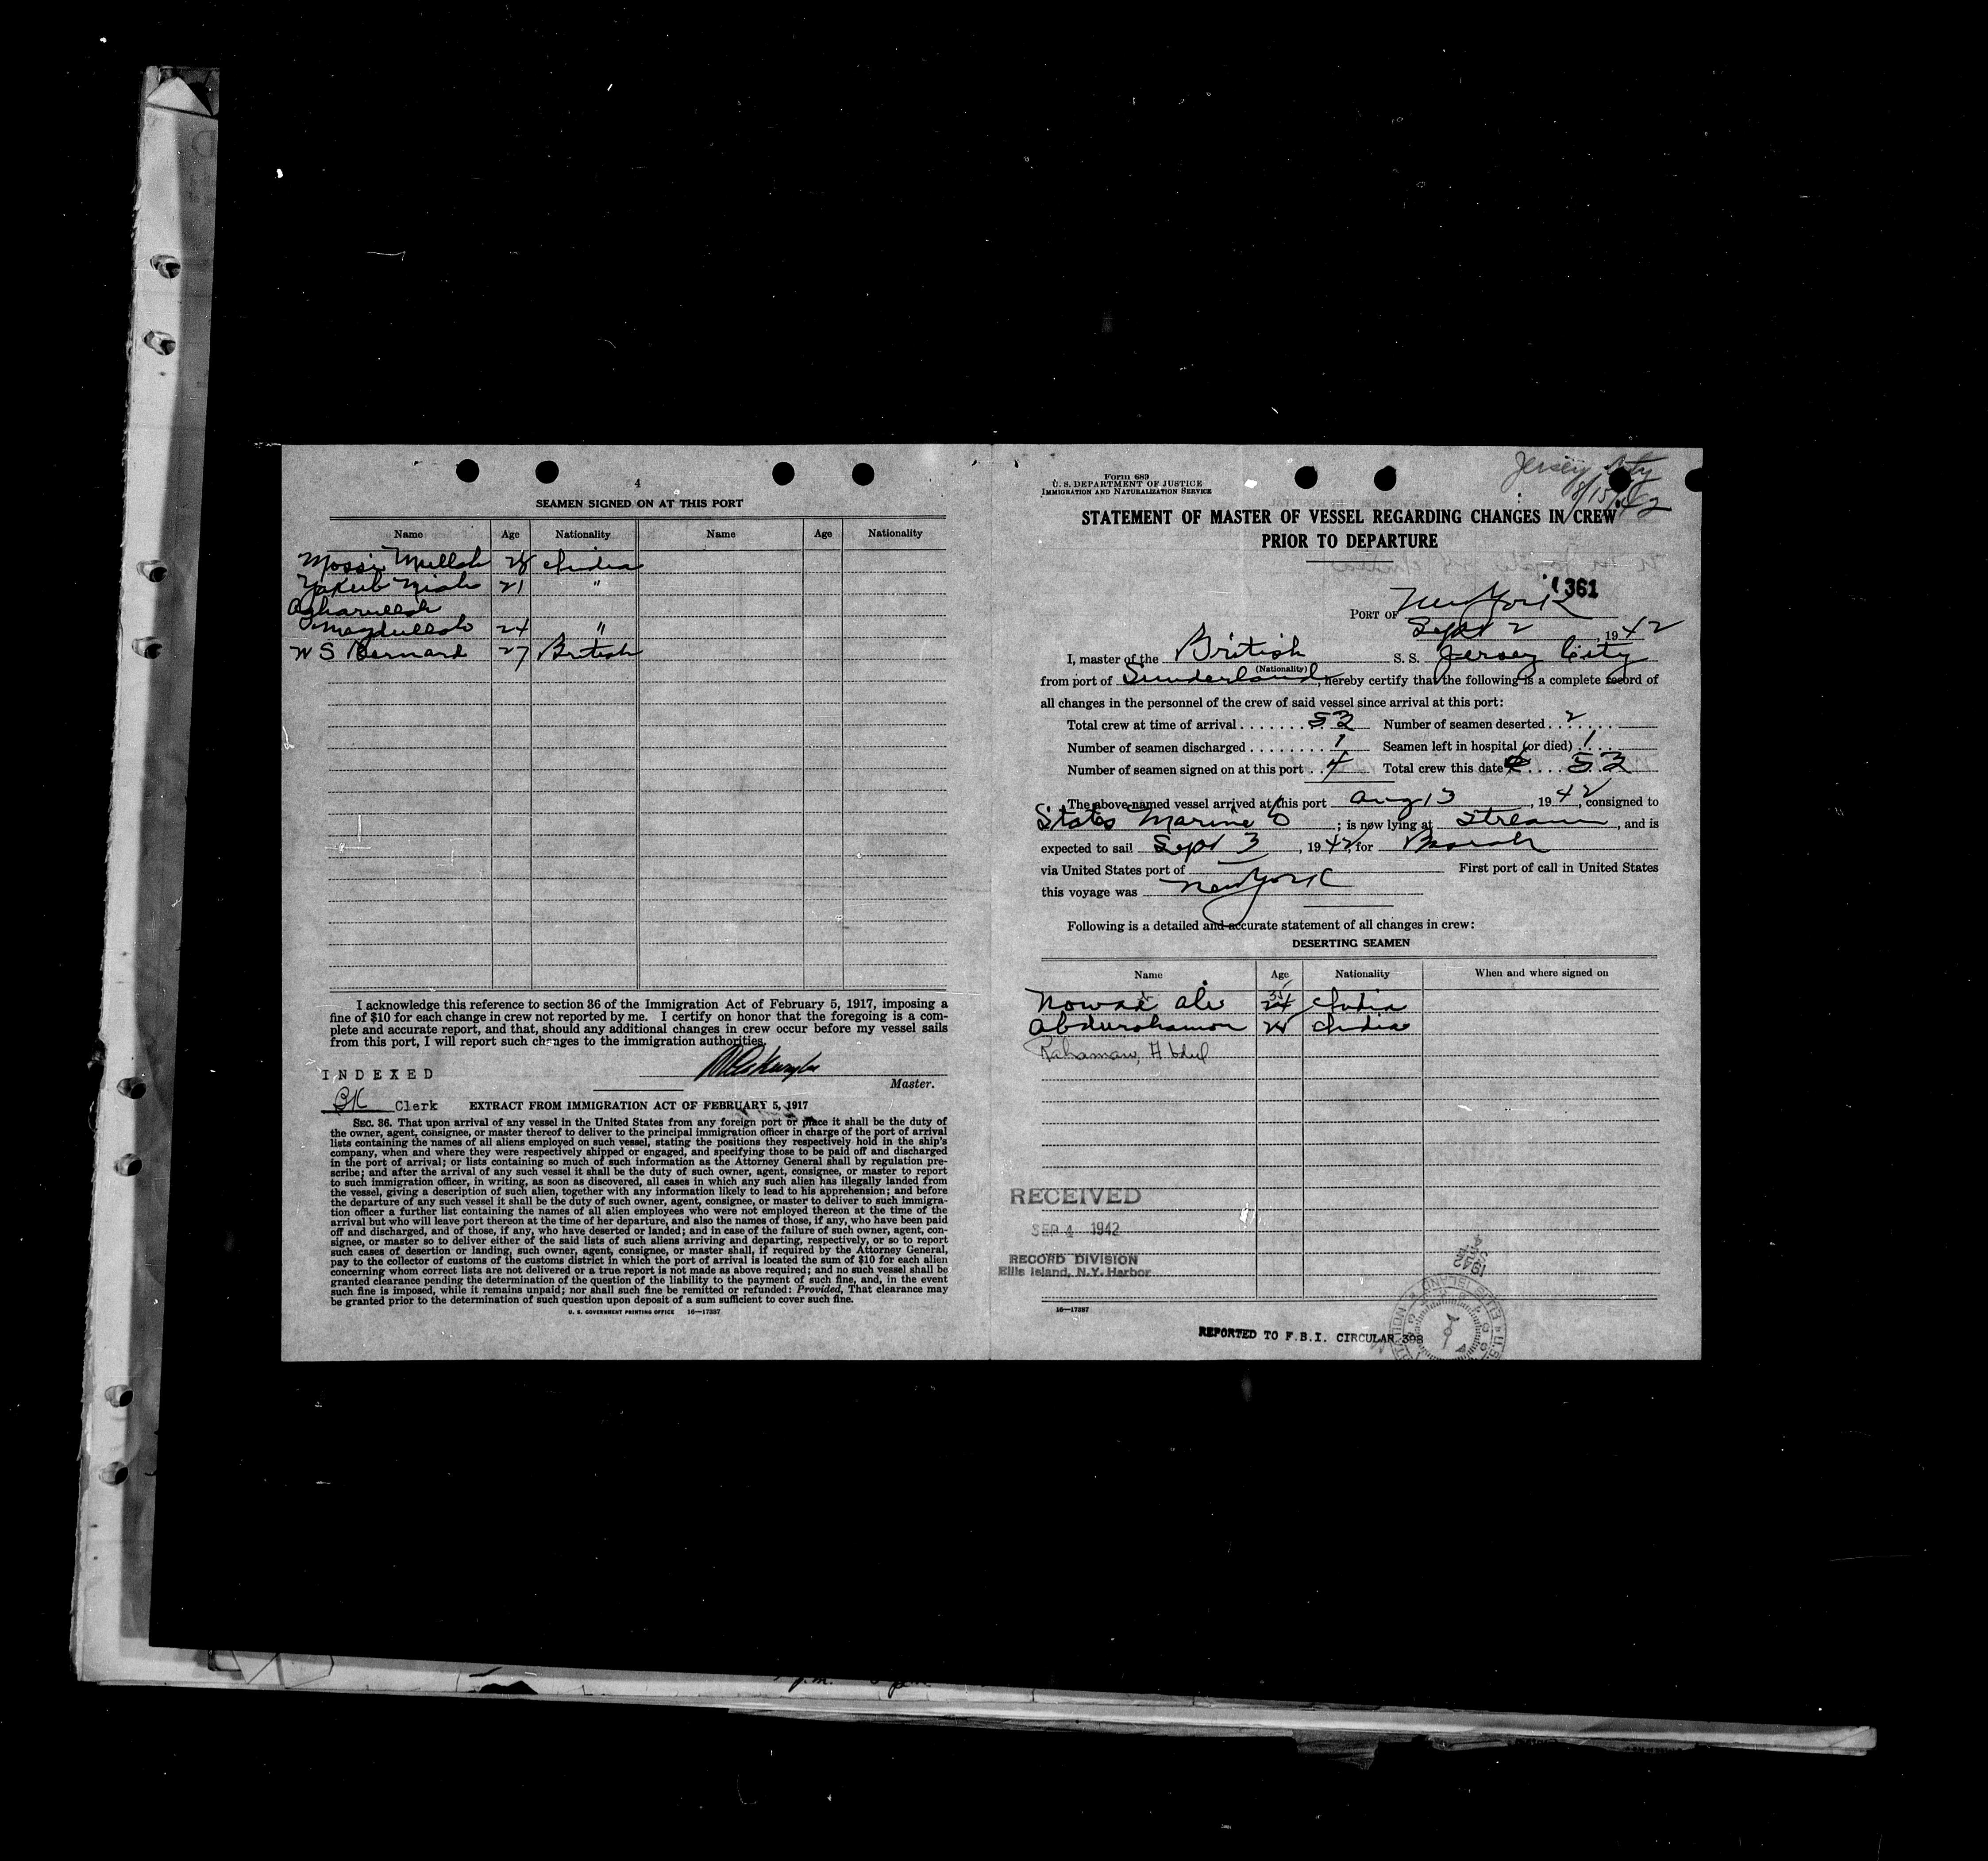 4
SEAMEN SIGNED ON AT THIS PORT
Name Age Nationality Name Age Nationality
Mossi Mullah 28 India
Yakub Miah 21 "
24 "
W S Bernard 27 British
I acknowledge this reference to section 36 of the Immigration Act of February 5, 1917, imposing a
fine of $10 for each change in crew not reported by me. I certify on honor that the foregoing is a com-
plete and accurate report, and that, should any additional changes in crew occur before my vessel sails
from this port, I will report such changes to the immigration authorities.
INDEXED
Master.
BK Clerk EXTRACT FROM IMMIGRATION ACT OF FEBRUARY 5, 1917
SEC. 36. That upon arrival of any vessel in the United States from any foreign port or place it shall be the duty of
the owner, agent, consignee, or master thereof to deliver to the principal immigration officer in charge of the port of arrival
lists containing the names of all aliens employed on such vessel, stating the positions they respectively hold in the ship's
company, when and where they were respectively shipped or engaged, and specifying those to be paid off and discharged
in the port of arrival; or lists containing so much of such information as the Attorney General shall by regulation pre-
scribe; and after the arrival of any such vessel it shall be the duty of such owner, agent, consignee, or master to report
to such immigration officer, in writing, as soon as discovered, all cases in which any such alien has illegally landed from
the vessel, giving a description of such alien, together with any information likely to lead to his apprehension; and before
the departure of any such vessel it shall be the duty of such owner, agent, consignee, or master to deliver to such immigra-
tion officer a further list containing the names of all alien employees who were not employed thereon at the time of the
arrival but who will leave port thereon at the time of her departure, and also the names of those, if any, who have been paid
off and discharged, and of those, if any, who have deserted or landed; and in case of the failure of such owner, agent, con-
signee, or master so to deliver either of the said lists of such aliens arriving and departing, respectively, or so to report
such cases of desertion or landing, such owner, agent, consignee, or master shall, if required by the Attorney General,
pay to the collector of customs of the customs district in which the port of arrival is located the sum of $10 for each alien
concerning whom correct lists are not delivered or a true report is not made as above required; and no such vessel shall be
granted clearance pending the determination of the question of the liability to the payment of such fine, and, in the event
such fine is imposed, while it remains unpaid; nor shall such fine be remitted or refunded: Provided, That clearance may
be granted prior to the determination of such question upon deposit of a sum sufficient to cover such fine.
U. S. GOVERNMENT PRINTING OFFICE 16—17337
Jersey City
8/15/42
Form 689
U. S. DEPARTMENT OF JUSTICE
IMMIGRATION AND NATURALIZATION SERVICE
STATEMENT OF MASTER OF VESSEL REGARDING CHANGES IN CREW
PRIOR TO DEPARTURE
361
PORT OF New York
Sept 2, 1942
I, master of the British S. S. Jersey City
(Nationality)
from port of Sunderland, hereby certify that the following is a complete record of
all changes in the personnel of the crew of said vessel since arrival at this port:
Total crew at time of arrival 52 Number of seamen deserted 2
Number of seamen discharged 1 Seamen left in hospital (or died) 1
Number of seamen signed on at this port 4 Total crew this date 52
The above-named vessel arrived at this port Aug 13, 1942, consigned to
States Marine Co; is now lying at Stream, and is
expected to sail Sept 3, 1942, for
via United States port of First port of call in United States
this voyage was New York
Following is a detailed and accurate statement of all changes in crew:
DESERTING SEAMEN
Name Age Nationality When and where signed on
Ali 35 India
Abdurohamon 28 India
Rahaman, Abdul
RECEIVED
SEP 4 1942
RECORD DIVISION
Ellis Island, N.Y. Harbor
16—17337
REPORTED TO F.B.I. CIRCULAR 398